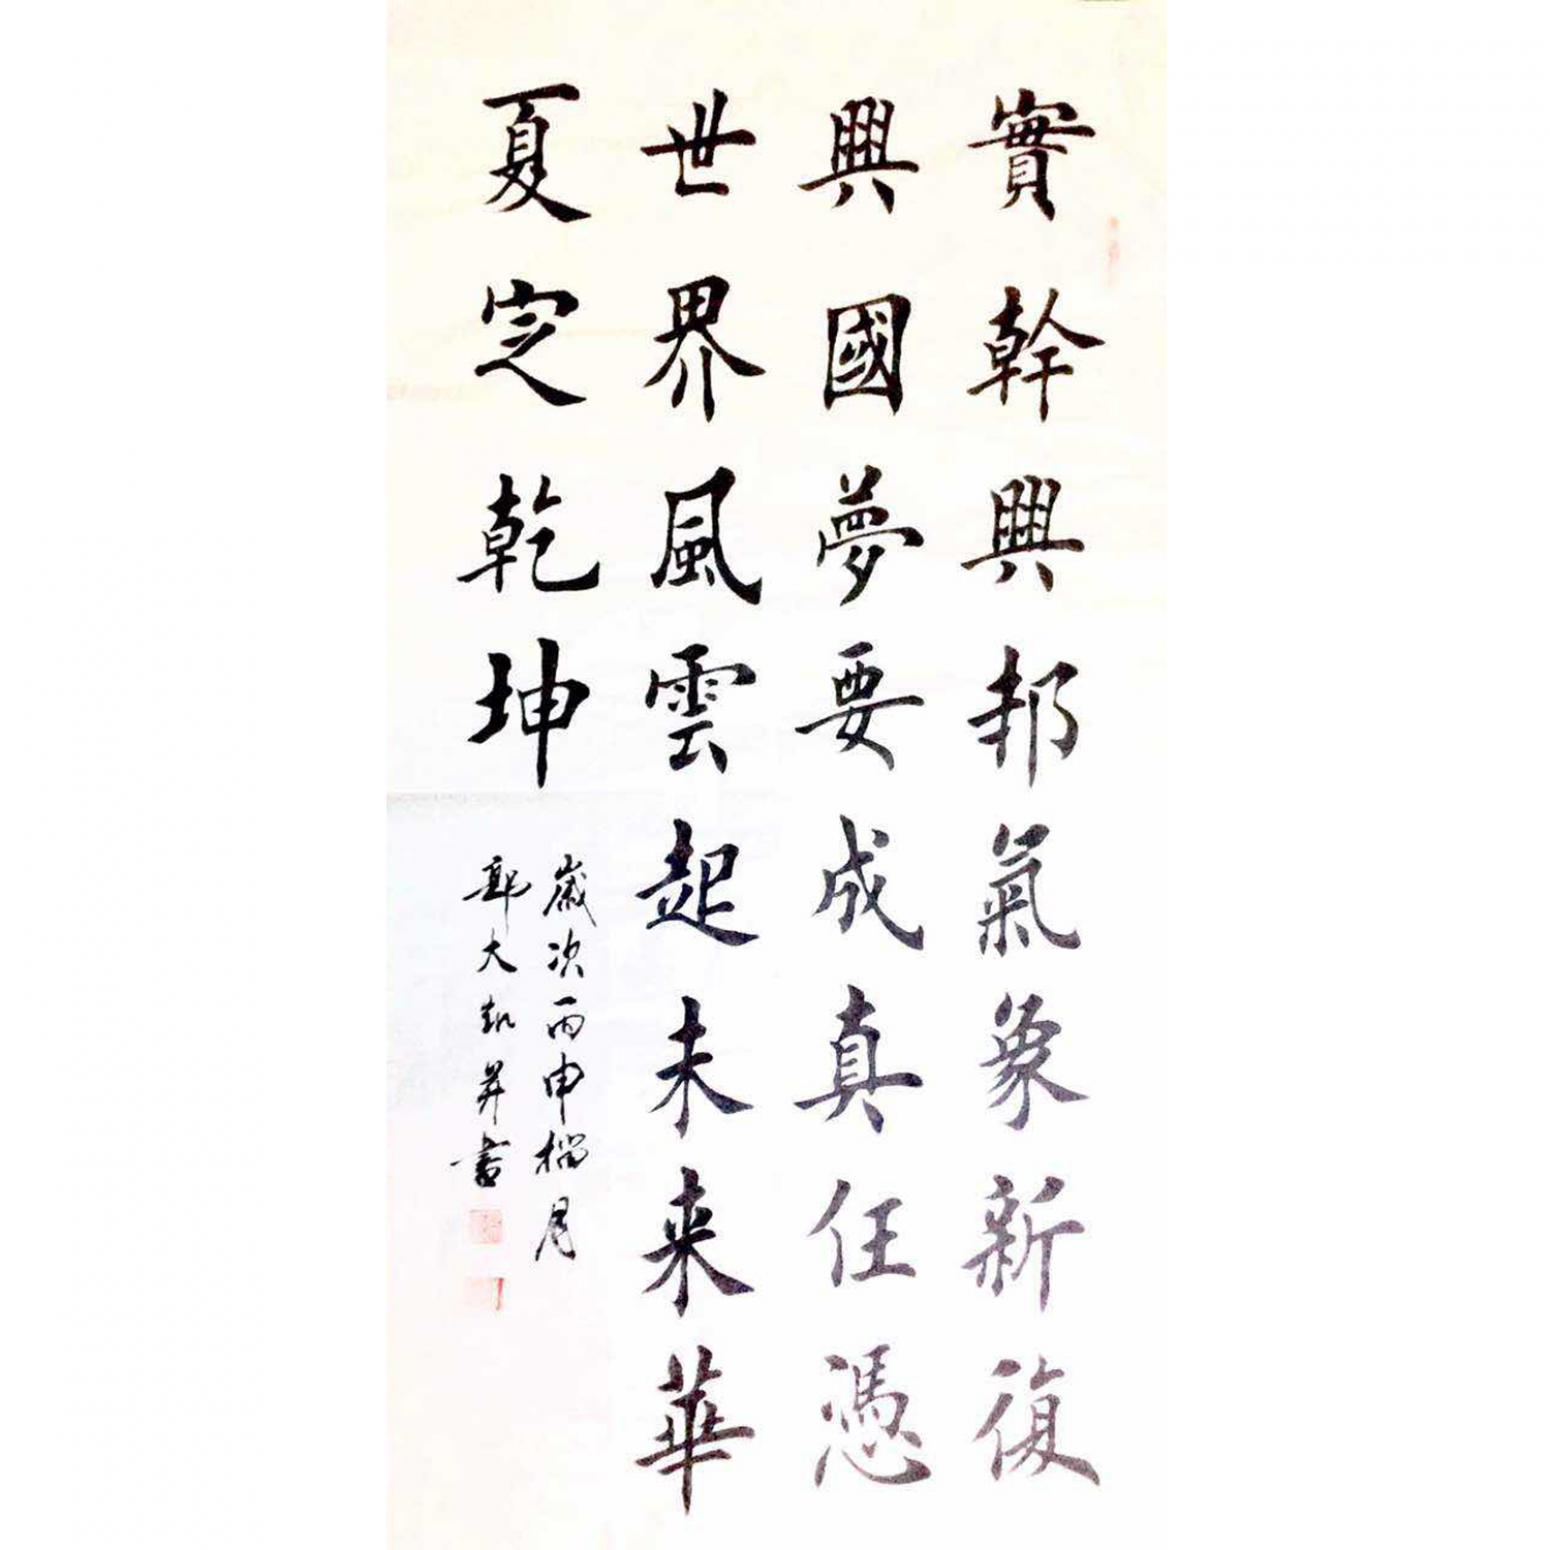 實幹興邦氣象新復
興國夢要成真任憑
世界風雲起未来華
夏定乾坤
歲次丙申櫤月
郭大凱並書